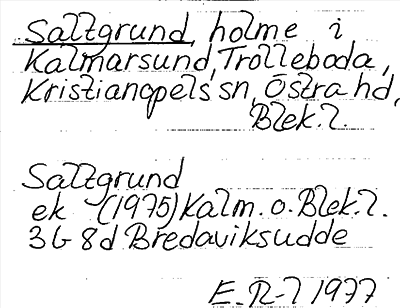 Saltgrund, holme i
Kalmarsund, Trolleboda,
Kristianopels sn, Östra hd,
Blek.l.
Saltgrund
ek (1975) Kalm. o. Blek.l.
3G 8d Bredaviksudde
E.R-l 1977